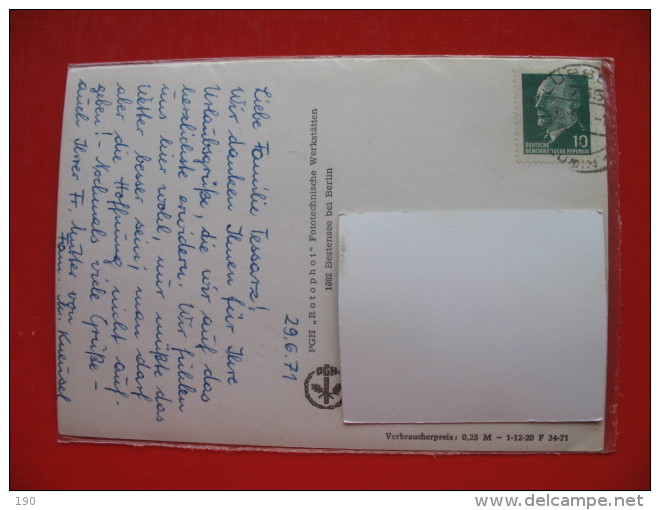 29.6.71
Liebe Familie Tessarz!
Wir danken Ihnen für Ihre
Urlaubsgrüße, die wir auf das
herzlichste erwidern. Wir fühlen
uns hier wohl, nur müßte das
Wetter besser sein; man darf
aber die Hoffnung nicht auf-
geben! - Nochmals viele Grüße -
auch Ihrer Fr. Mutter von
Fam. M. Kneusel
PGH „Rotophot" Fototechnische Werkstätten
1602 Bestensee bei Berlin
PGH
10
DEUTSCHE
DEMOKRATISCHE REPUBLIK
Verbraucherpreis: 0,25 M - 1-12-20 F 34-71
190
delcampe.net